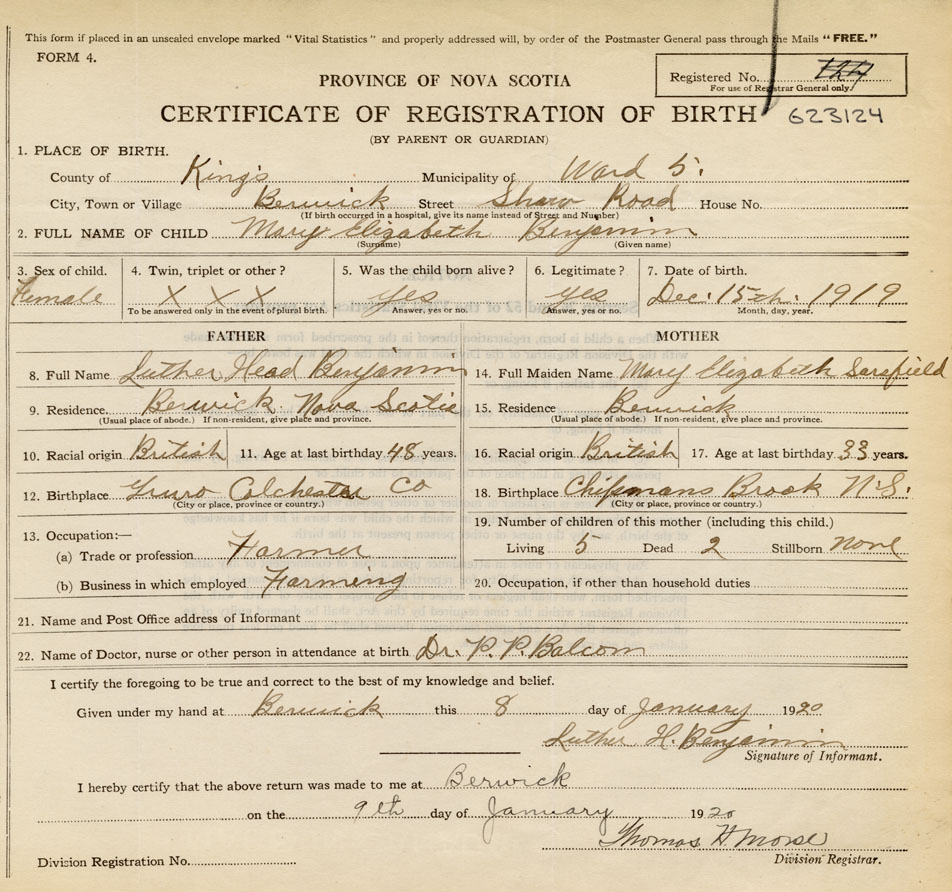 This form if placed in an unsealed envelope marked "Vital Statistics" and properly addressed will, by order of the Postmaster General pass through the Mails "FREE."
FORM 4.
PROVINCE OF NOVA SCOTIA
Registered No. 124
For use of Registrar General only
CERTIFICATE OF REGISTRATION OF BIRTH 623124
(BY PARENT OR GUARDIAN)
1. PLACE OF BIRTH.
County of King's Municipality of Ward 5.
City, Town or Village Berwick Street Shaw Road House No.
(If birth occurred in a hospital, give its name instead of Street and Number)
2. FULL NAME OF CHILD Mary Elizabeth Benjamin
(Surname) (Given name)
3. Sex of child. 4. Twin, triplet or other? 5. Was the child born alive? 6. Legitimate? 7. Date of birth.
Female X X X yes yes Dec. 15th. 1919
To be answered only in the event of plural birth. Answer, yes or no. Answer, yes or no. Month, day, year.
FATHER MOTHER
8. Full Name Luther Head Benjamin 14. Full Maiden Name Mary Elizabeth Sarsfield
9. Residence. Berwick Nova Scotia 15. Residence Berwick
(Usual place of abode.) If non-resident, give place and province. (Usual place of abode.) If non-resident, give place and province.
10. Racial origin British 11. Age at last birthday 48 years. 16. Racial origin British 17. Age at last birthday 33 years.
12. Birthplace Truro Colchester Co 18. Birthplace Chipmans Brook N.S.
(City or place, province or country.) (City or place, province or country.)
13. Occupation:— 19. Number of children of this mother (including this child.)
(a) Trade or profession Farmer Living 5 Dead 2 Stillborn none
(b) Business in which employed Farming 20. Occupation, if other than household duties
21. Name and Post Office address of Informant
22. Name of Doctor, nurse or other person in attendance at birth Dr. P. P. Balcom
I certify the foregoing to be true and correct to the best of my knowledge and belief.
Given under my hand at Berwick this 8 day of January 1920
Luther H. Benjamin
Signature of Informant.
I hereby certify that the above return was made to me at Berwick
on the 9th day of January 1920
Thomas H Morse
Division Registration No. Division Registrar.